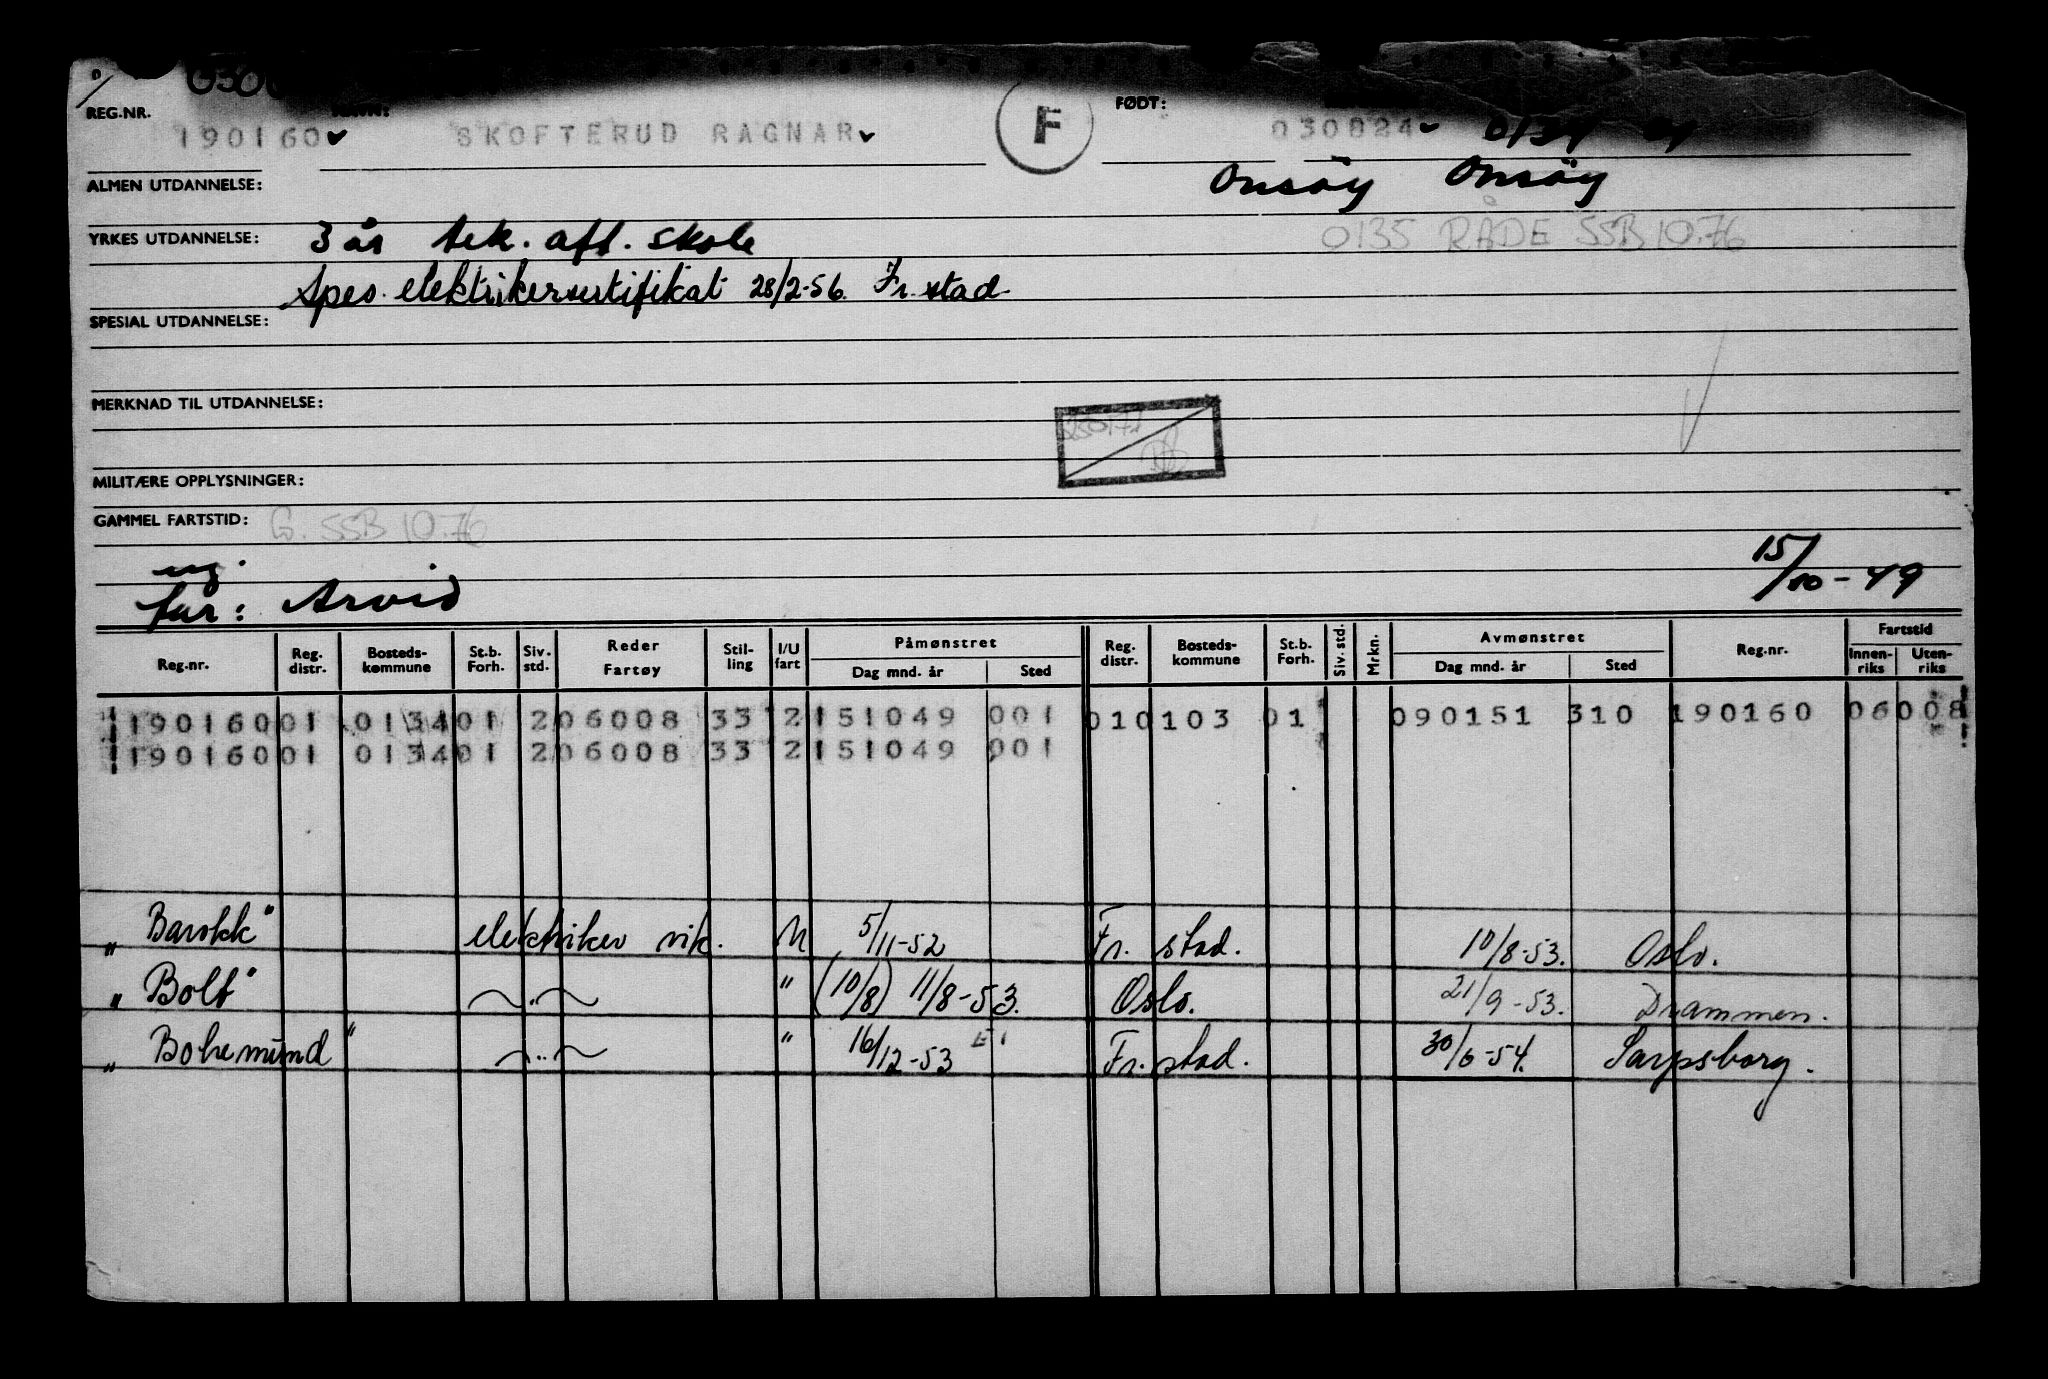 REG.NR.
FØDT:
190160 SKOFTERUD RAGNAR F 030824
ALMEN UTDANNELSE: Onsøy Onsøy
YRKES UTDANNELSE: 3 år tek. aft. skole 0135 RÅDE SSB 10.76
Spes. elektrikersertifikat 28/2-56. Fr.stad.
SPESIAL UTDANNELSE:
MERKNAD TIL UTDANNELSE:
MILITÆRE OPPLYSNINGER:
GAMMEL FARTSTID: G. SSB 10.76
ug. 15/10-49
far: Arvid
Reg.nr. Reg. distr. Bosteds-kommune St.b. Forh. Siv. std. Reder Fartøy Stil-ling I/U fart Påmønstret Dag mnd. år Sted Reg. distr. Bosteds-kommune St.b. Forh. Siv. std. Mrkn. Avmønstret Dag mnd. år Sted Reg.nr. Fartstid Innen-riks Uten-riks
190160 01 0134 01 2 06008 33 2 151049 001 010 103 01 090151 310 190160 06008
190160 01 0134 01 2 06008 33 2 151049 001
„Barokk" elektriker vik. U 5/11-52 Fr.stad. 10/8-53. Oslo.
„Bolt" " " (10/8) 11/8-53. Oslo. 21/9-53. Drammen.
„Bohemund" " " 16/12-53 Fr.stad. 30/6-54. Sarpsborg.